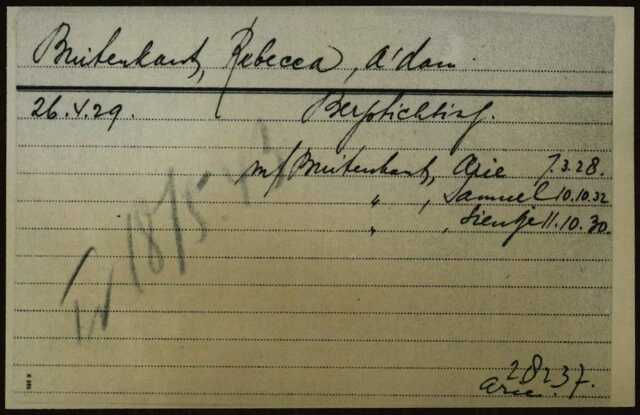 Buitenkant, Rebecca, A'dam
26.4.29. Berg­stichting.
m/ Buitenkant, Arie 7.3.28.
" , Samuel 10.10.32
" , Sientje 11.10.30.
18/5
28237.
Arie